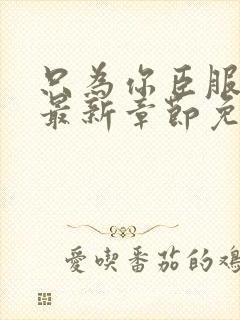 只為你臣服
最新章節免
愛喫番茄的鸡